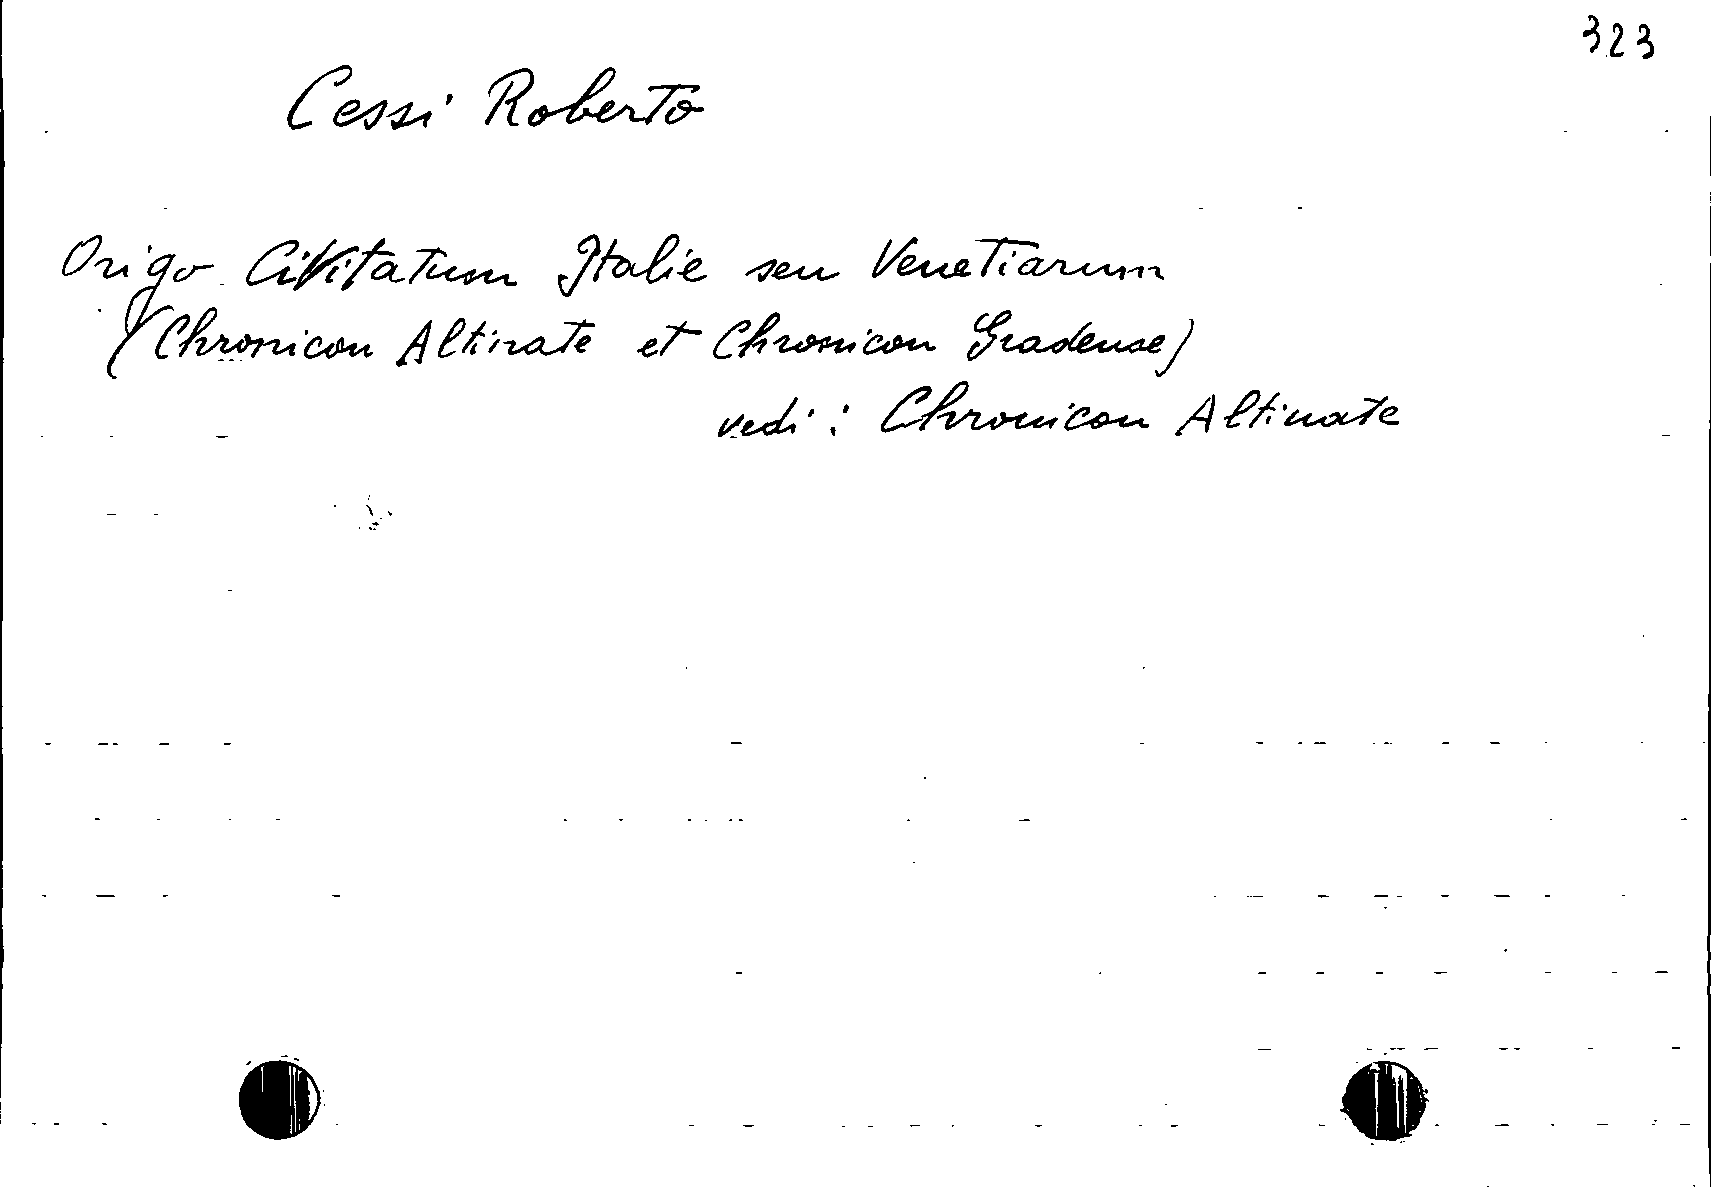 323
Cessi Roberto
Origo Civitatum Italie seu Venetiarum
(Chronicon Altinate et Chronicon Gradense)
vedi: Chronicon Altinate